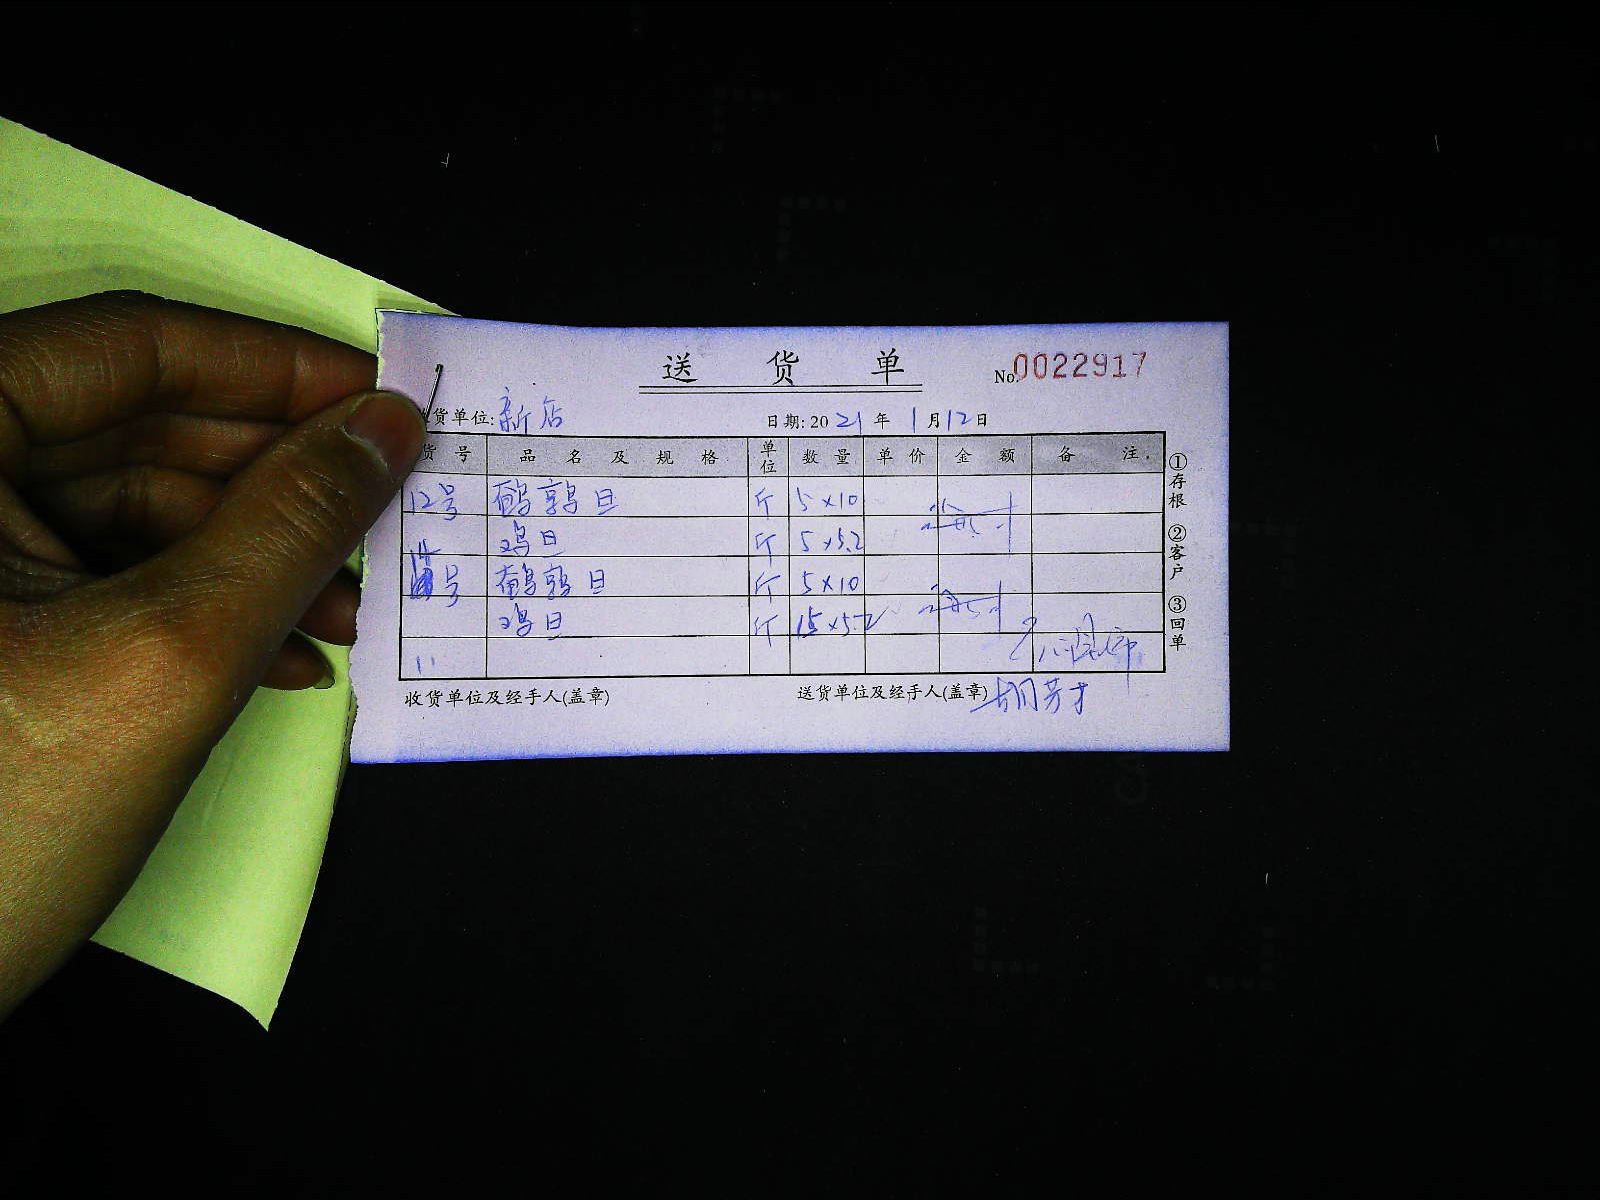 送 货 单
No.0022917
货单位: 新店
日期: 2021 年 1月12日
货 号 品 名 及 规 格 单位 数 量 单 价 金 额 备 注
12号 鹌鹑旦 斤 5×10
鸡旦 斤 5×5.2
号 鹌鹑旦 斤 5×10
鸡旦 斤 15×5.2
收货单位及经手人(盖章)
送货单位及经手人(盖章) 胡芳才
①存根 ②客户 ③回单